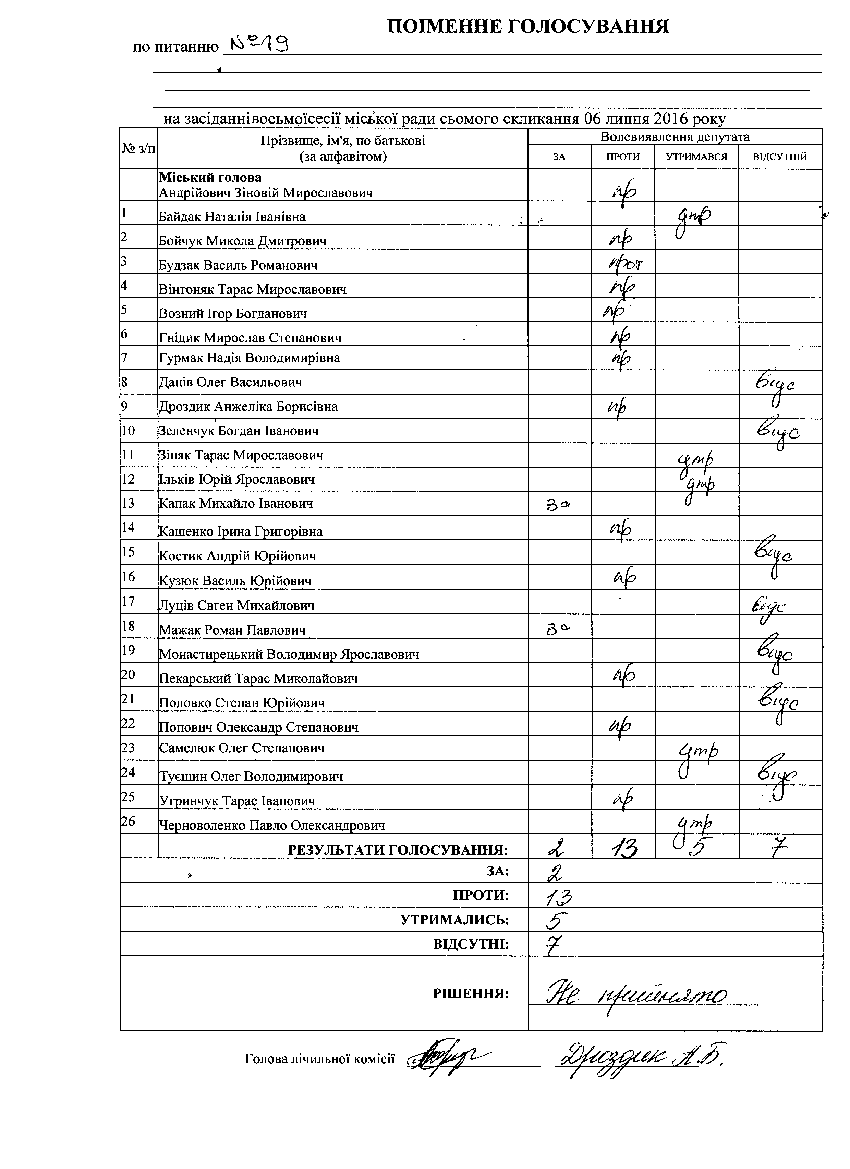 ПОІМЕННЕ ГОЛОСУВАННЯ
по питанню №19
на засіданнівосьмоїсесії міської ради сьомого скликання 06 липня 2016 року
№ з/п Прізвище, ім'я, по батькові (за алфавітом) Волевиявлення депутата
ЗА ПРОТИ УТРИМАВСЯ ВІДСУТНІЙ
Міський голова
Андрійович Зіновій Мирославович пр
1 Байдак Наталія Іванівна утр
2 Бойчук Микола Дмитрович пр
3 Будзак Василь Романович прот
4 Вінтоняк Тарас Мирославович пр
5 Возний Ігор Богданович пр
6 Гнідик Мирослав Степанович пр
7 Гурмак Надія Володимирівна пр
8 Данів Олег Васильович відс
9 Дроздик Анжеліка Борисівна пр
10 Зеленчук Богдан Іванович відс
11 Зіняк Тарас Мирославович утр
12 Ільків Юрій Ярославович утр
13 Капак Михайло Іванович За
14 Кашенко Ірина Григорівна пр
15 Костик Андрій Юрійович відс
16 Кузюк Василь Юрійович пр
17 Луців Євген Михайлович відс
18 Мажак Роман Павлович За
19 Монастирецький Володимир Ярославович відс
20 Пекарський Тарас Миколайович пр
21 Половко Степан Юрійович відс
22 Попович Олександр Степанович пр
23 Самелюк Олег Степанович утр
24 Туєшин Олег Володимирович відс
25 Угринчук Тарас Іванович пр
26 Черноволенко Павло Олександрович утр
РЕЗУЛЬТАТИ ГОЛОСУВАННЯ: 2 13 5 7
ЗА: 2
ПРОТИ: 13
УТРИМАЛИСЬ: 5
ВІДСУТНІ: 7
РІШЕННЯ: Не прийнято
Голова лічильної комісії Дроздик А.Б.